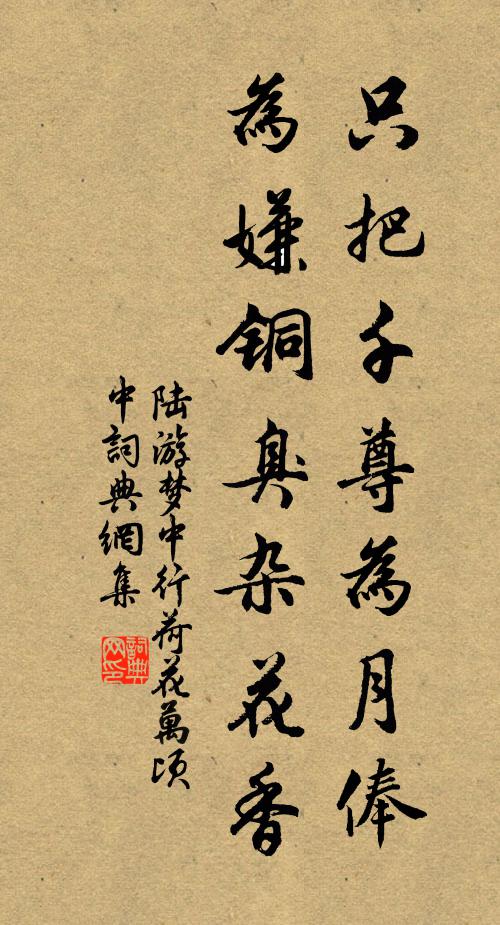 只把千尊為月俸
為嫌铜臭杂花香
陆游梦中行荷花萬頃
中詞典網集
詞典网印